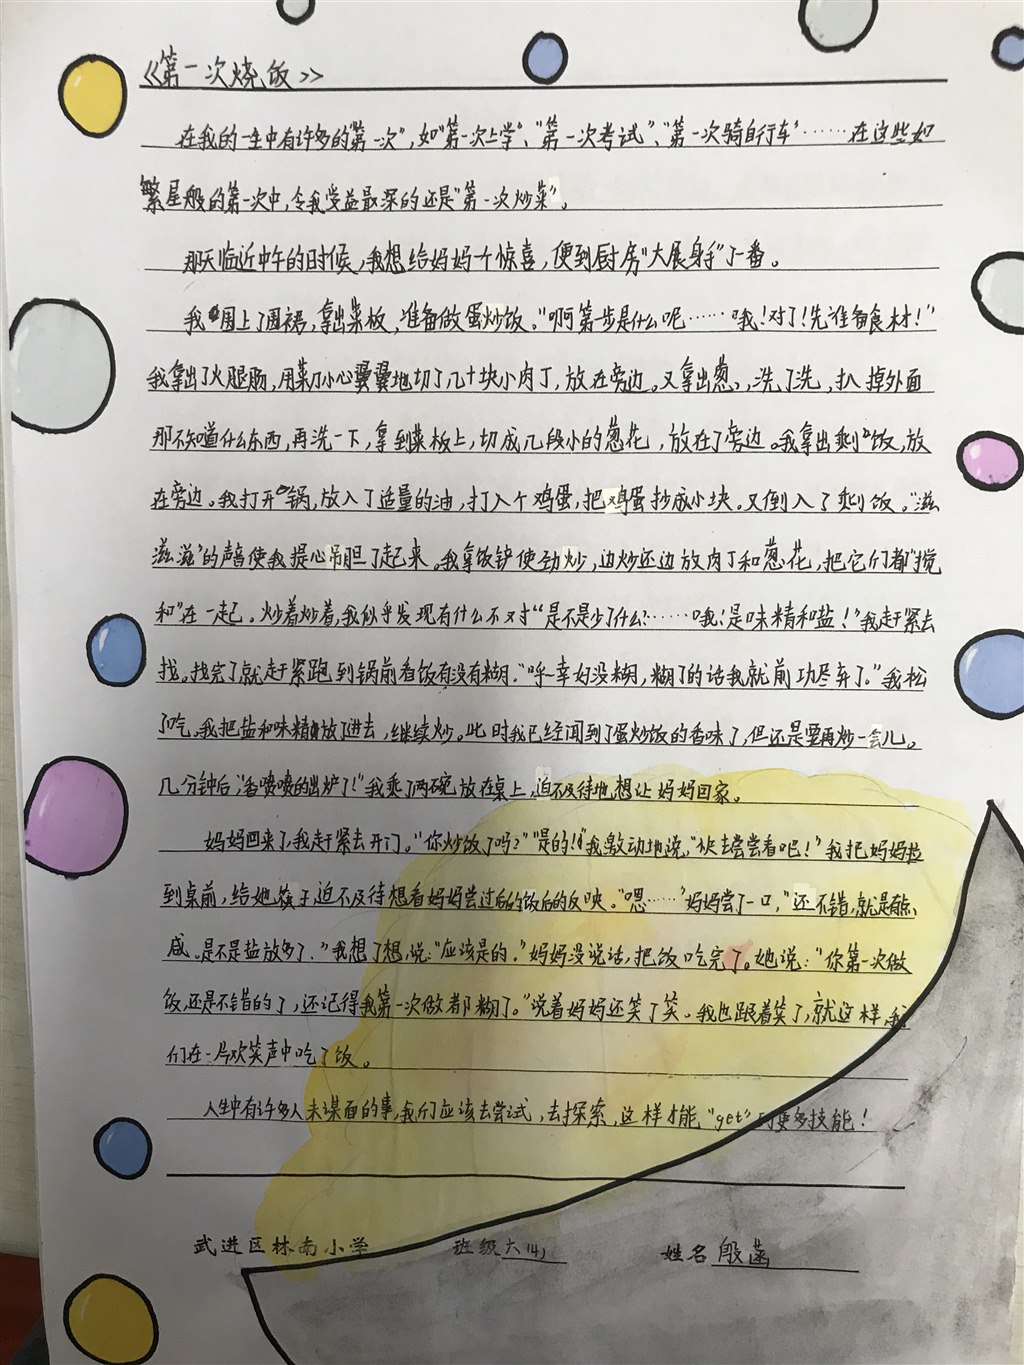 《第一次烧饭》
在我的一生中有许多的“第一次”,如“第一次上学”、“第一次考试”、“第一次骑自行车”……在这些如
繁星般的第一次中,令我受益最深的还是“第一次炒菜”。
那天临近中午的时候,我想给妈妈个惊喜,便到厨房“大展身手”了一番。
我围上了围裙,拿出菜板,准备做蛋炒饭。“啊第一步是什么呢……哦!对了!先准备食材!”
我拿出了火腿肠,用菜刀小心翼翼地切了几十块小肉丁,放在旁边。又拿出葱,洗了洗,扒掉外面
那不知道什么东西,再洗一下,拿到菜板上,切成几段小的葱花,放在了旁边。我拿出剩饭,放
在旁边。我打开锅,放入了适量的油,打入个鸡蛋,把鸡蛋抄成小块。又倒入了剩饭。“滋
滋滋”的声音使我提心吊胆了起来。我拿饭铲使劲炒,边炒还边放肉丁和葱花,把它们都“搅
和”在一起。炒着炒着,我似乎发现有什么不对“是不是少了什么?……哦!是味精和盐!”我赶紧去
找。找完了就赶紧跑到锅前看饭有没有糊。“呼~幸好没糊,糊了的话我就前功尽弃了。”我松
了吃。我把盐和味精放了进去,继续炒。此时我已经闻到了蛋炒饭的香味了,但还是要再炒一会儿。
几分钟后,“香喷喷的出炉了!”我乘了两碗放在桌上,迫不及待地想让妈妈回家。
妈妈回来了,我赶紧去开门。“你炒饭了吗?”“是的!”我激动地说,“快去尝尝看吧!”我把妈妈拉
到桌前,给她筷子,迫不及待想看妈妈尝过后的饭后的反映。“嗯……”妈妈尝了一口,“还不错,就是有点
咸。是不是盐放多了.”我想了想,说:“应该是的.”妈妈没说话,把饭吃完了。她说:“你第一次做
饭,还是不错的了,还记得我第一次做都糊了。”说着妈妈还笑了笑。我也跟着笑了,就这样,我
们在一片欢笑声中吃了饭。
人生中有许多人未谋面的事,我们应该去尝试,去探索,这样才能“get”到更多技能!
武进区林南小学 班级六(4) 姓名 殷菡